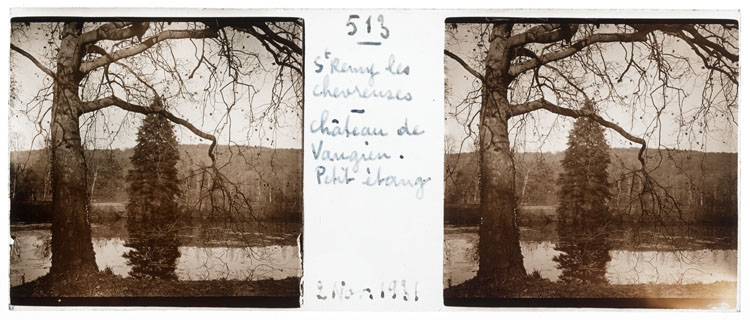 513
St Remy les
chevreuses
château de
Vaugien.
Petit étang
2 Nov. 1931